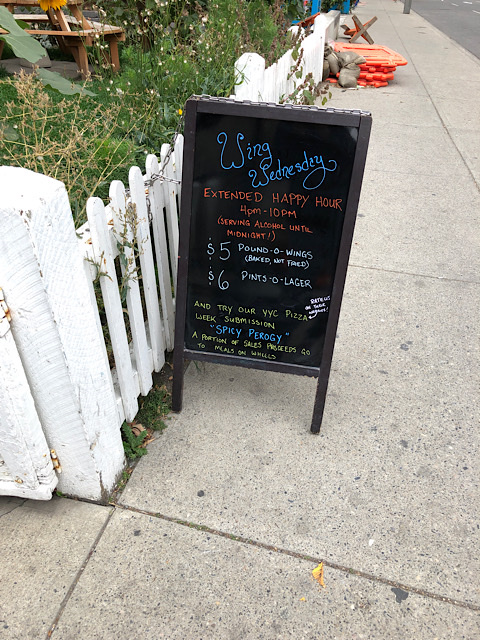 Wing
Wednesday
EXTENDED HAPPY HOUR
4pm-10PM
(SERVING ALCOHOL UNTIL
MIDNIGHT!)
$5 POUND-O-WINGS
(BAKED, NOT FRIED)
$6 PINTS-O-LAGER
AND TRY OUR YYC PIZZA
WEEK SUBMISSION
"SPICY PEROGY"
A PORTION OF SALES PROCEEDS GO
TO MEALS ON WHEELS
RATE US
ON THEIR
WEBSITE!